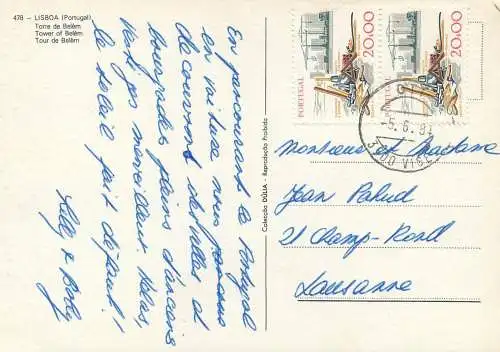 478 – LISBOA (Portugal)
Torre de Belém
Tower of Belém
Tour de Belém
En parcourant le Portugal
en voiture nous pensons
découvrent des villes et
bourgades pleins d'anciens
vestiges merveilleux. Hélas,
le soleil fait défaut!
Colecção DÚLIA - Reprodução Proibida
PORTUGAL
20.00
PORTUGAL
20.00
-5.6.8
Monsieur et Madame
Jean Pahud
21 Champ-Rond
Lausanne